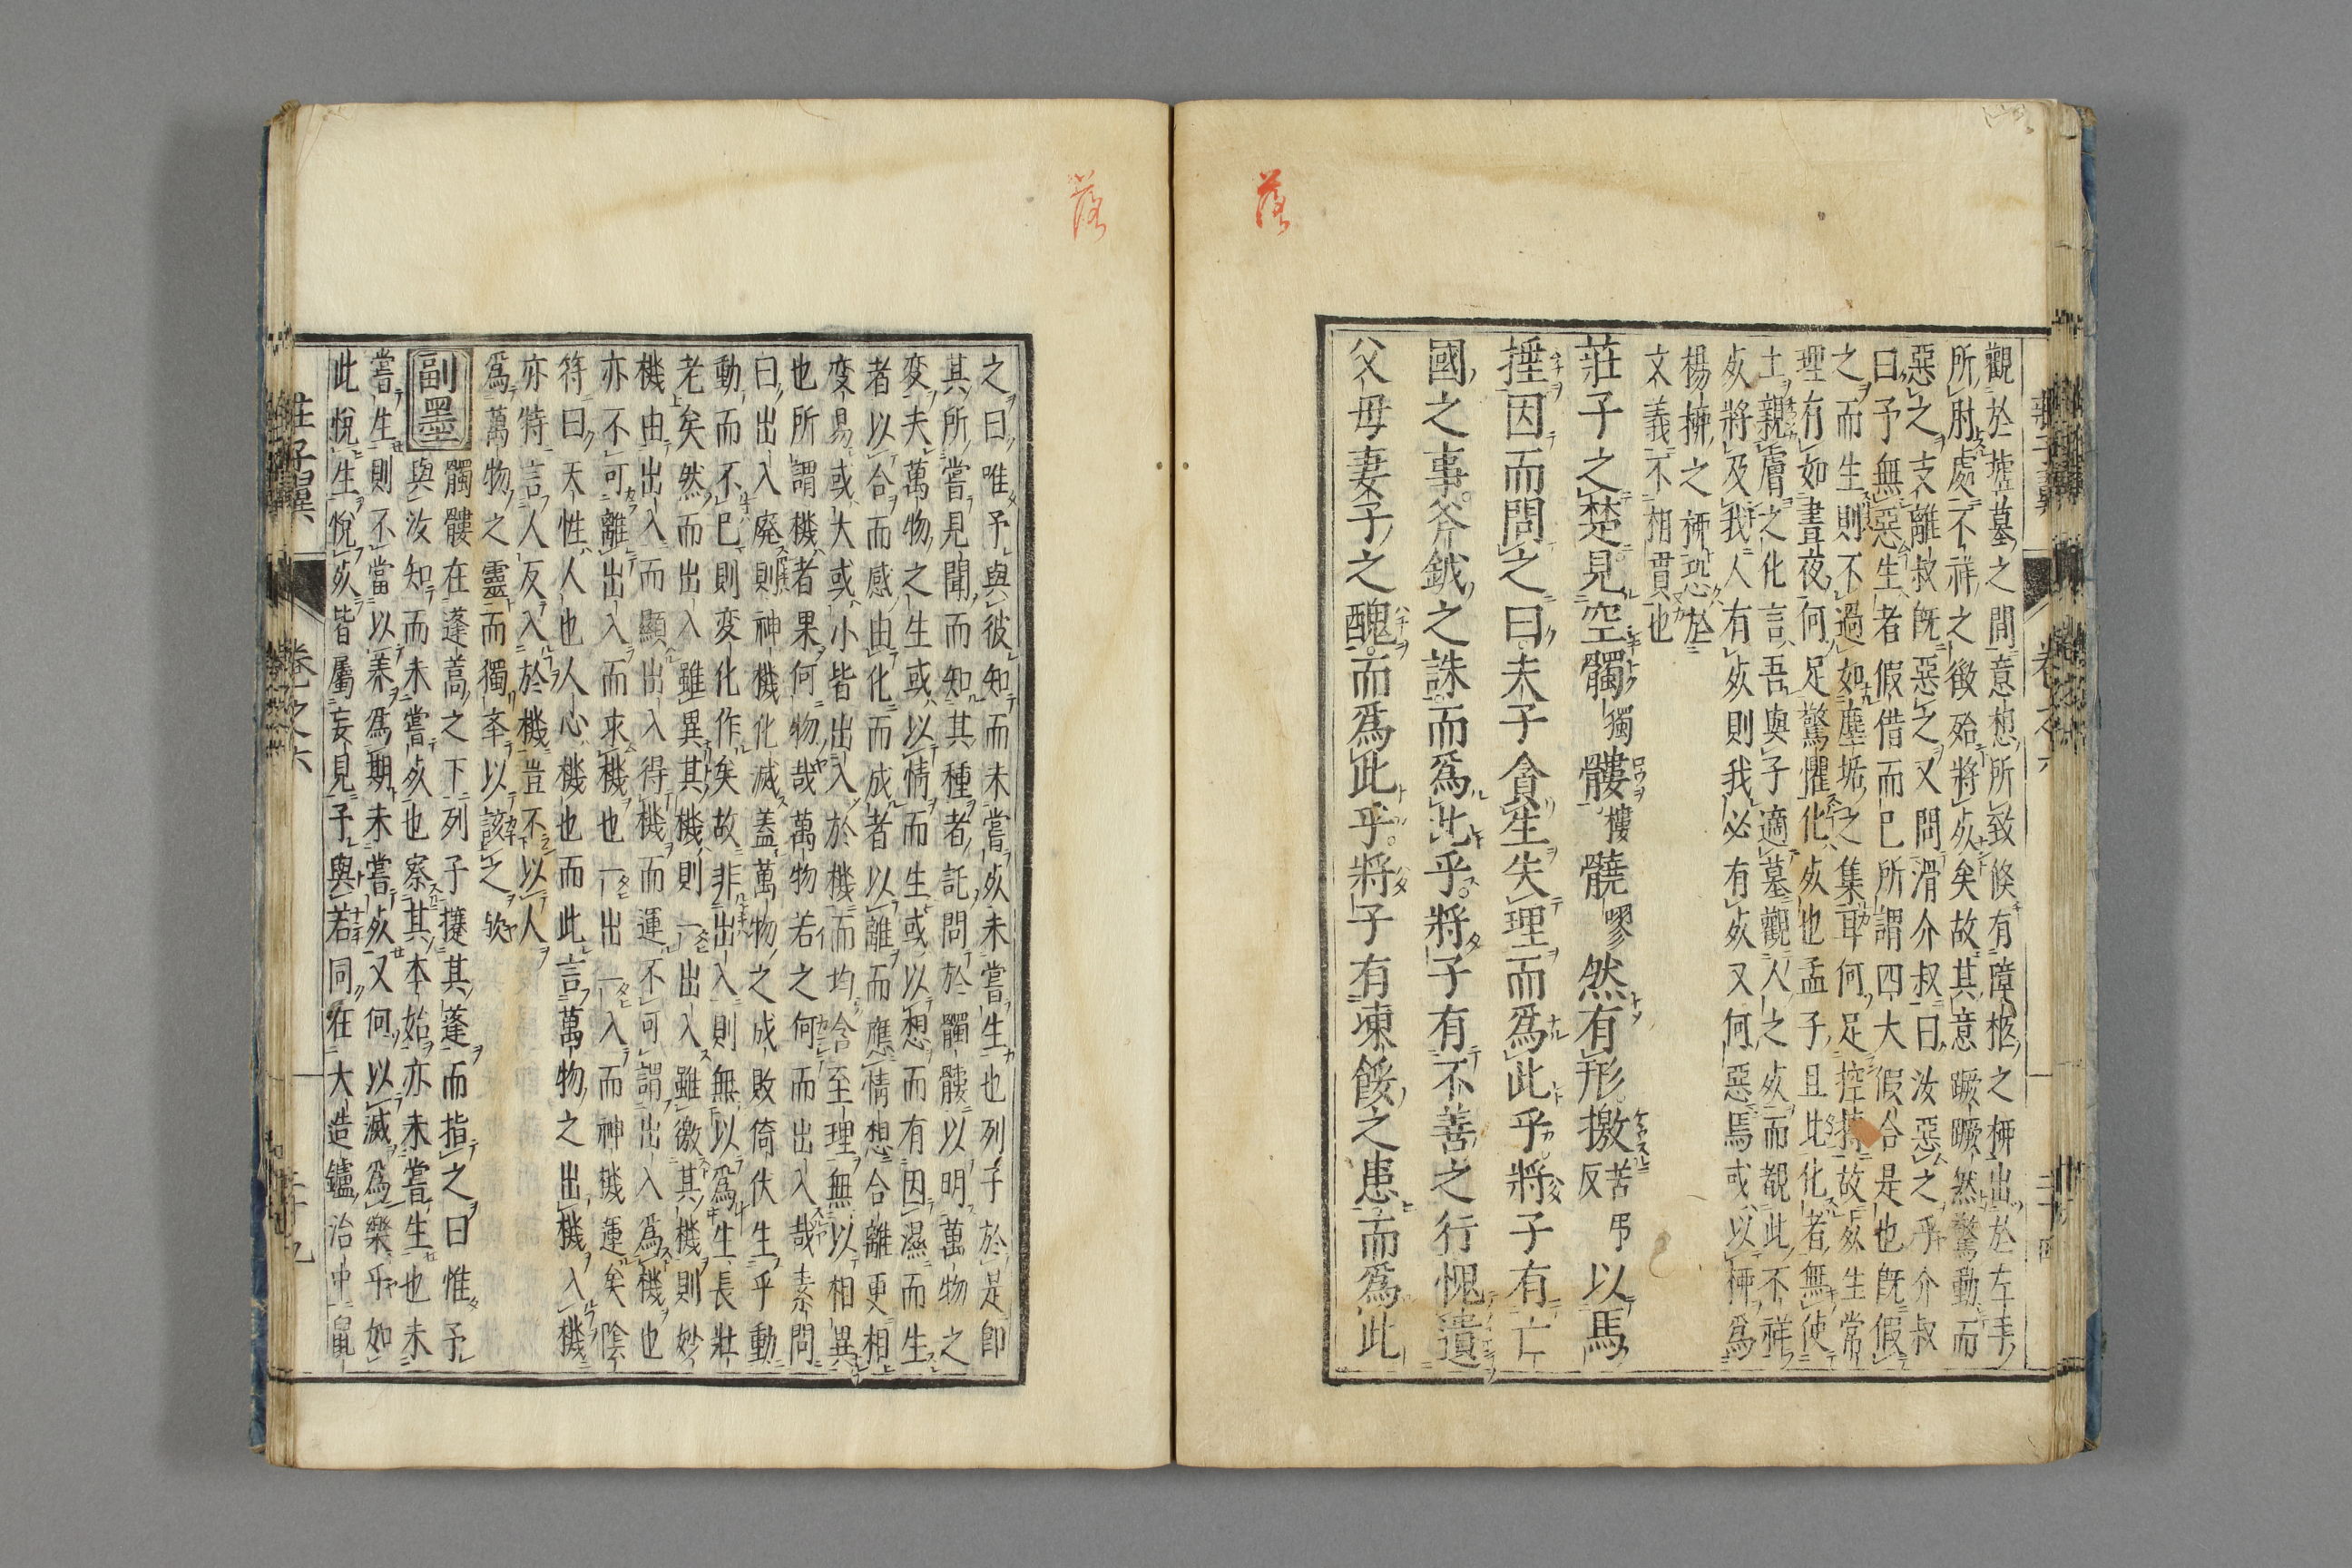 落
莊子翼 卷之六 二十四
觀於墟墓之間意想所致倐有障柩之柳出於左手
所肘處不祥之徵殆將㱙矣故其意蹶蹶然驚動而
惡之支離叔旣惡之又問滑介叔曰汝惡之乎介叔
曰予無惡生者假借而已所謂四大假合是也旣假
之而生則不過如塵垢之集耳何足控摶故㱙生常
理有如晝夜何足驚懼化㱙也孟子且比化者無使
土親膚之化言吾與子適墓觀人之㱙而覩此不祥
㱙將及我人有㱙則我必有㱙又何惡焉或以柳爲
楊柳之柳恐於
文義不相貫也
莊子之楚見空髑獨髏樓髐嘐然有形撽苦弔反以馬
捶因而問之曰夫子貪生失理而爲此乎將子有亡
國之事斧鉞之誅而爲此乎將子有不善之行愧遺
父母妻子之醜而爲此乎將子有凍餒之患而爲此
落
之曰唯予與彼知而未嘗㱙未嘗生也列子於是卽
其所嘗見聞而知其種者託問於髑髏以明萬物之
変夫萬物之生或以情而生或以想而有因濕而生
者以合而感由化而成者以離而應情想合離更相
変易或大或小皆出入於機而均含至理無以相異
也所謂機者果何物哉萬物若之何而出入哉素問
曰出入廢則神機化滅蓋萬物之成敗倚伏生乎動
動而不已則変化作矣故非出入則無以爲生長壯
老矣然而出入雖異其機則一出入雖微其機則妙
機由出入而顯出入得機而運不可謂出入爲機也
亦不可離出入而求機也一出一入而神機運矣陰
符曰天性人也人心機也而此言萬物之出機入機
亦特言人反入於機豈不以人
爲萬物之靈而獨夲以該之欤
副墨 髑髏在蓬蒿之下列子攓其蓬而指之曰惟予
與汝知而未嘗㱙也察其本始亦未嘗生也未
嘗生則不當以養爲期未嘗㱙又何以滅爲樂乎如
此悅生悅㱙皆屬妄見予與若同在大造鑪冶中鼠
莊子翼 卷之六 二十九